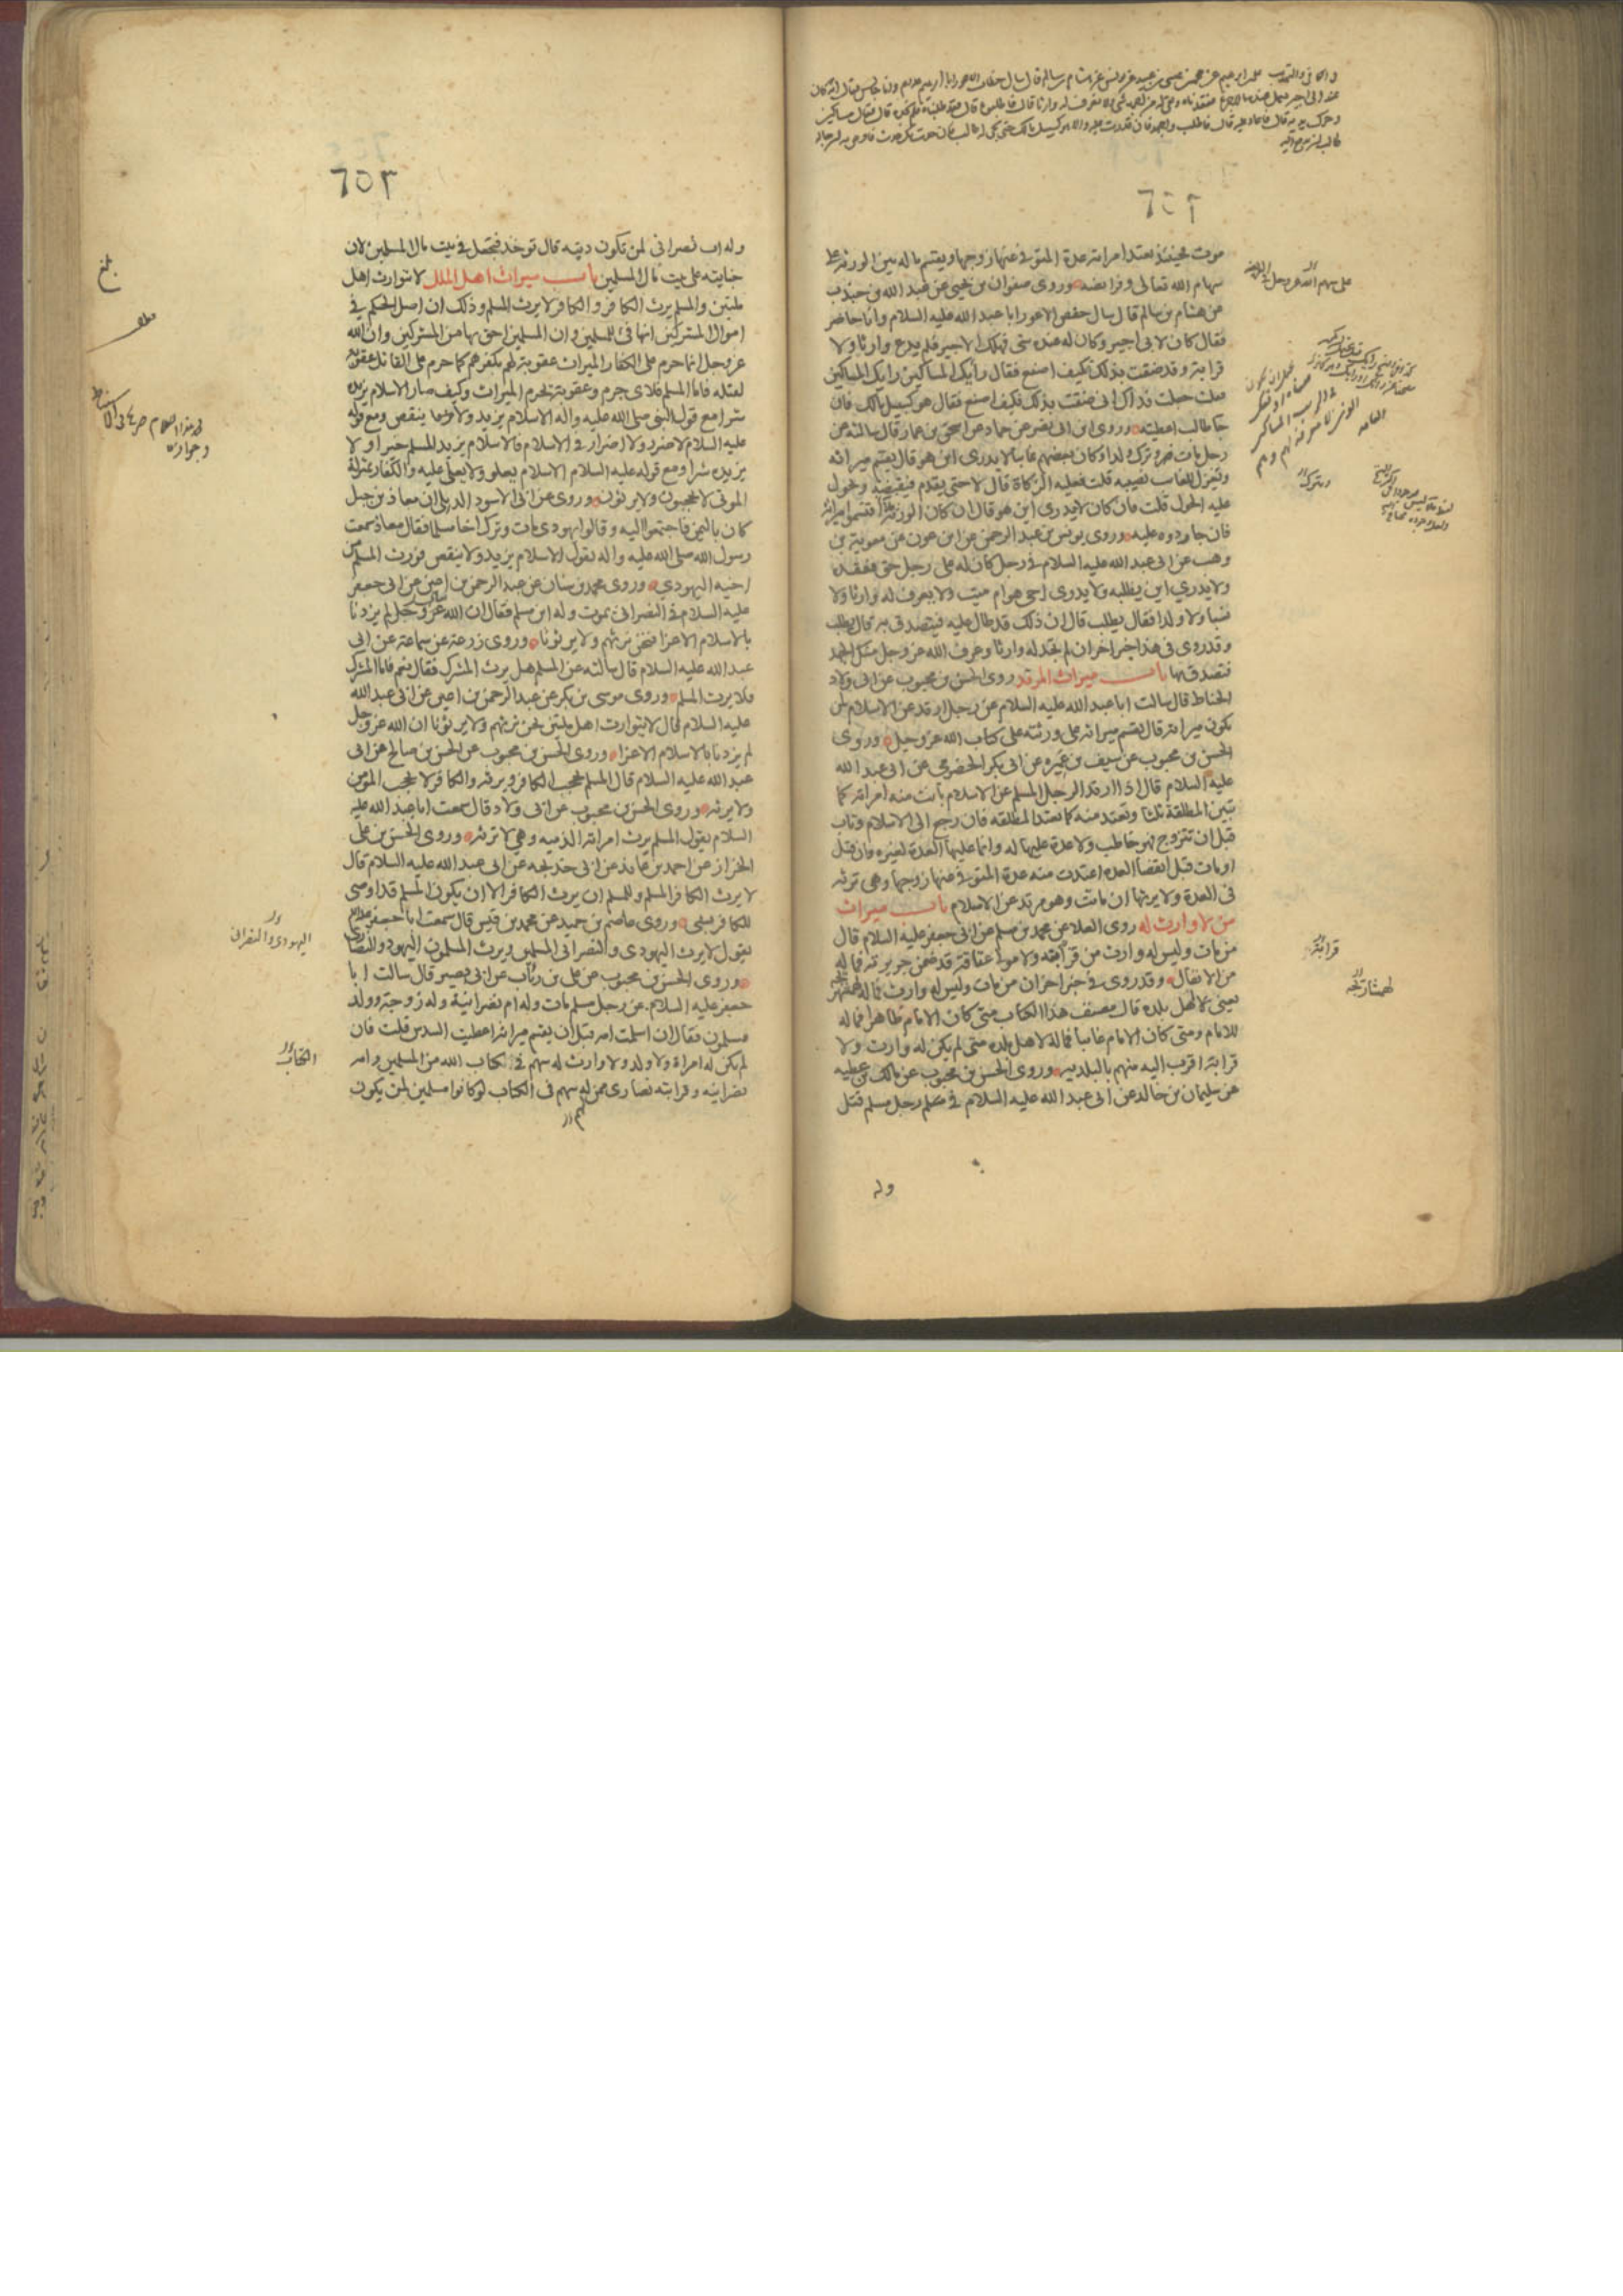 ٦٥٢
موت فحينئذ تعتد امراته عدة المتوفى عنها زوجها ويقسم ماله بين الورثة على
سهام الله تعالى وفرائضه وروى صفوان بن يحيى عن عبد الله بن جندب
عن هشام بن سالم قال سال حفص الاعور ابا عبد الله عليه السلام وانا حاضر
فقال كان لابي اجير وكان له عنده شئ فهلك الاجير فلم يدع وارثا ولا
قرابة وقد ضقت بذلك كيف اصنع فقال رايك المساكين رايك المساكين
فقلت جعلت فداك انى ضقت بذلك فكيف اصنع فقال هو كسبيل مالك فان
جا طالب اعطيته وروى ابن ابى نصر عن حماد عن اسحق بن عمار قال سالته عن
رجل مات وترك ولدا وكان بعضهم غايبا لا يدرى اين هو قال يقسم ميراثه
ويعزل للغايب نصيبه قلت فعليه الزكاة قال لا حتى يقدم فيقبضه ويحول
عليه الحول قلت فان كان لا يدرى اين هو قال ان كان الورثة اقتسموا ميراثه
فان جا ردوه عليه وروى يونس بن عبد الرحمن عن ابن عون عن معوية بن
وهب عن ابى عبد الله عليه السلام فى رجل كان له على رجل حق ففقده
ولا يدرى اين يطلبه ولا يدرى احى هو ام ميت ولا يعرف له وارثا ولا
نسبا ولا ولدا فقال يطلب قال ان ذلك قد طال عليه فيتصدق به قال يطلب
وقد روى فى هذا خبر اخر ان لم تجد له وارثا وعرف الله عز وجل منك الجهد
فتصدق بها باب ميراث المرتد روى الحسن بن محبوب عن ابى ولاد
الحناط قال سالت ابا عبد الله عليه السلام عن رجل ارتد عن الاسلام لمن
يكون ميراثه قال يقسم ميراثه على ورثته على كتاب الله عز وجل وروى
الحسن بن محبوب عن سيف بن عميره عن ابى بكر الحضرمى عن ابى عبد الله
عليه السلام قال اذا ارتد الرجل المسلم عن الاسلام بانت منه امراته كما
تبين المطلقة ثلثا وتعتد منه كما تعتد المطلقه فان رجع الى الاسلام وتاب
قبل ان تتزوج فهو خاطب ولا عدة عليها له وانما عليها العدة لغيره وان قتل
او مات قبل انقضا العده اعتدت منه عدة المتوفى عنها زوجها وهى ترثه
فى العدة ولا يرثها ان ماتت وهو مرتد عن الاسلام باب ميراث
من لا وارث له روى العلا عن محمد بن مسلم عن ابى جعفر عليه السلام قال
من مات وليس له وارث من قرابته ولا مولا عتاقة قد ضمن جريرته فماله
من الانفال وقد روى فى خبر اخر ان من مات وليس له وارث فماله لهمشهريجه
يعنى لاهل بلده قال مصنف هذا الكتاب متى كان الامام ظاهرا فماله
للامام ومتى كان الامام غائبا فماله لاهل بلده متى لم يكن له وارث ولا
قرابة اقرب اليه منهم بالبلديه وروى الحسن بن محبوب عن مالك بن عطيه
عن سليمان بن خالد عن ابى عبد الله عليه السلام فى مسلم رجل مسلم قتل
وله
قرابته
٦٥٣
وله اب نصرانى لمن تكون ديته قال توخذ فتجعل فى بيت مال المسلمين لان
جنايته على بيت مال المسلمين باب ميراث اهل الملل لا توارث اهل
ملتين والمسلم يرث الكافر والكافر لا يرث المسلم وذلك ان اصل الحكم فى
اموال المشركين انها فئ للمسلمين وان المسلمين احق بها من المشركين وان الله
عز وجل انما حرم على الكفار الميراث عقوبة لهم بكفرهم كما حرم على القاتل عقوبة
لقتله فاما المسلم فلاى جرم وعقوبة يحرم الميراث وكيف صار الاسلام يزيده
شرا مع قول النبى صلى الله عليه واله الاسلام يزيد ولا ينقص ومع قوله
عليه السلام لا ضرر ولا اضرار فى الاسلام فالاسلام يزيد المسلم خيرا ولا
يزيده شرا ومع قوله عليه السلام الاسلام يعلو ولا يعلى عليه والكفار بمنزلة
الموتى لا يحجبون ولا يرثون وروى عن ابى الاسود الدئلى ان معاذ بن جبل
كان باليمن فاجتمعوا اليه وقالوا يهودى مات وترك اخا مسلما فقال معاذ سمعت
رسول الله صلى الله عليه واله يقول الاسلام يزيد ولا ينقص فورث المسلم من
اخيه اليهودى وروى محمد بن سنان عن عبد الرحمن بن اعين عن ابى جعفر
عليه السلام فى النصرانى يموت وله ابن مسلم فقال ان الله عز وجل لم يزدنا
بالاسلام الا عزا فنحن نرثهم ولا يرثونا وروى زرعة عن سماعة عن ابى
عبد الله عليه السلام قال سالته عن المسلم هل يرث المشرك فقال نعم فاما المشرك
فلا يرث المسلم وروى موسى بن بكر عن عبد الرحمن بن اعين عن ابى عبد الله
عليه السلام قال لا يتوارث اهل ملتين نحن نرثهم ولا يرثونا ان الله عز وجل
لم يزدنا بالاسلام الا عزا وروى الحسن بن محبوب عن الحسن بن صالح عن ابى
عبد الله عليه السلام قال المسلم يحجب الكافر ويرثه والكافر لا يحجب المؤمن
ولا يرثه وروى الحسن بن محبوب عن ابى ولاد قال سمعت ابا عبد الله عليه
السلام يقول المسلم يرث امراته الذميه وهى لا ترثه وروى الحسن بن على
الخزاز عن احمد بن عائذ عن ابى خديجه عن ابى عبد الله عليه السلام قال
لا يرث الكافر المسلم وللمسلم ان يرث الكافر الا ان يكون المسلم قد اوصى
للكافر بشئ وروى عاصم بن حميد عن محمد بن قيس قال سمعت ابا جعفر عليه السلام
يقول لا يرث اليهودى والنصرانى المسلمين ويرث المسلمون اليهود والنصارى
وروى الحسن بن محبوب عن على بن رئاب عن ابى بصير قال سالت ابا
جعفر عليه السلام عن رجل مسلم مات وله ام نصرانية وله زوجة وولد
مسلمون فقال ان اسلمت امه قبل ان يقسم ميراثه اعطيت السدس قلت فان
لم يكن له امراة ولا ولد ولا وارث له سهم فى الكتاب الله من المسلمين وامه
نصرانيه وقرابته نصارى ممن له سهم فى الكتاب لو كانوا مسلمين لمن يكون
بلغ
اليهودى والنصرانى
الكتاب